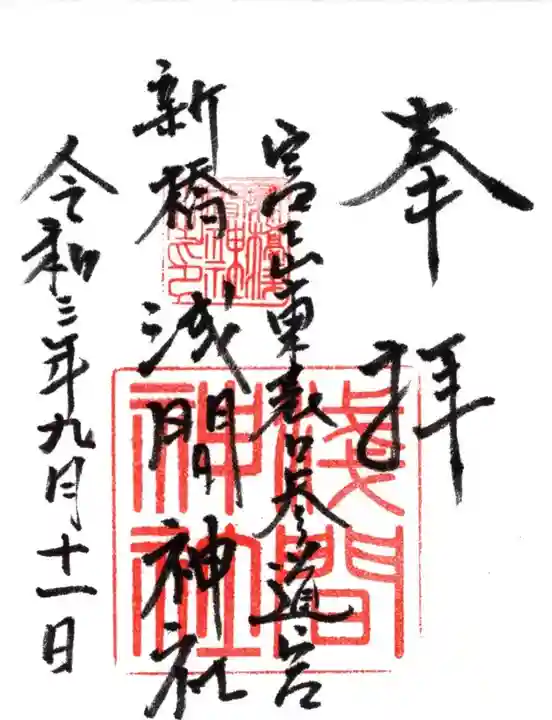 奉拝
富士山東表口参道宮
新橋浅間神社
令和三年九月十一日
淺間神社